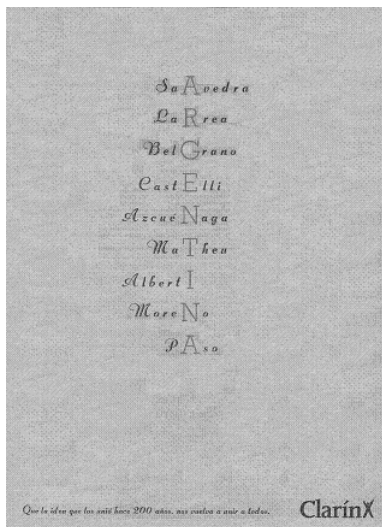 SaAvedra
LaRrea
BelGrano
CastElli
AzcuéNaga
MaTheu
AlbertI
MoreNo
PAso
Que la idea que los unió hace 200 años, nos vuelva a unir a todos.
Clarín